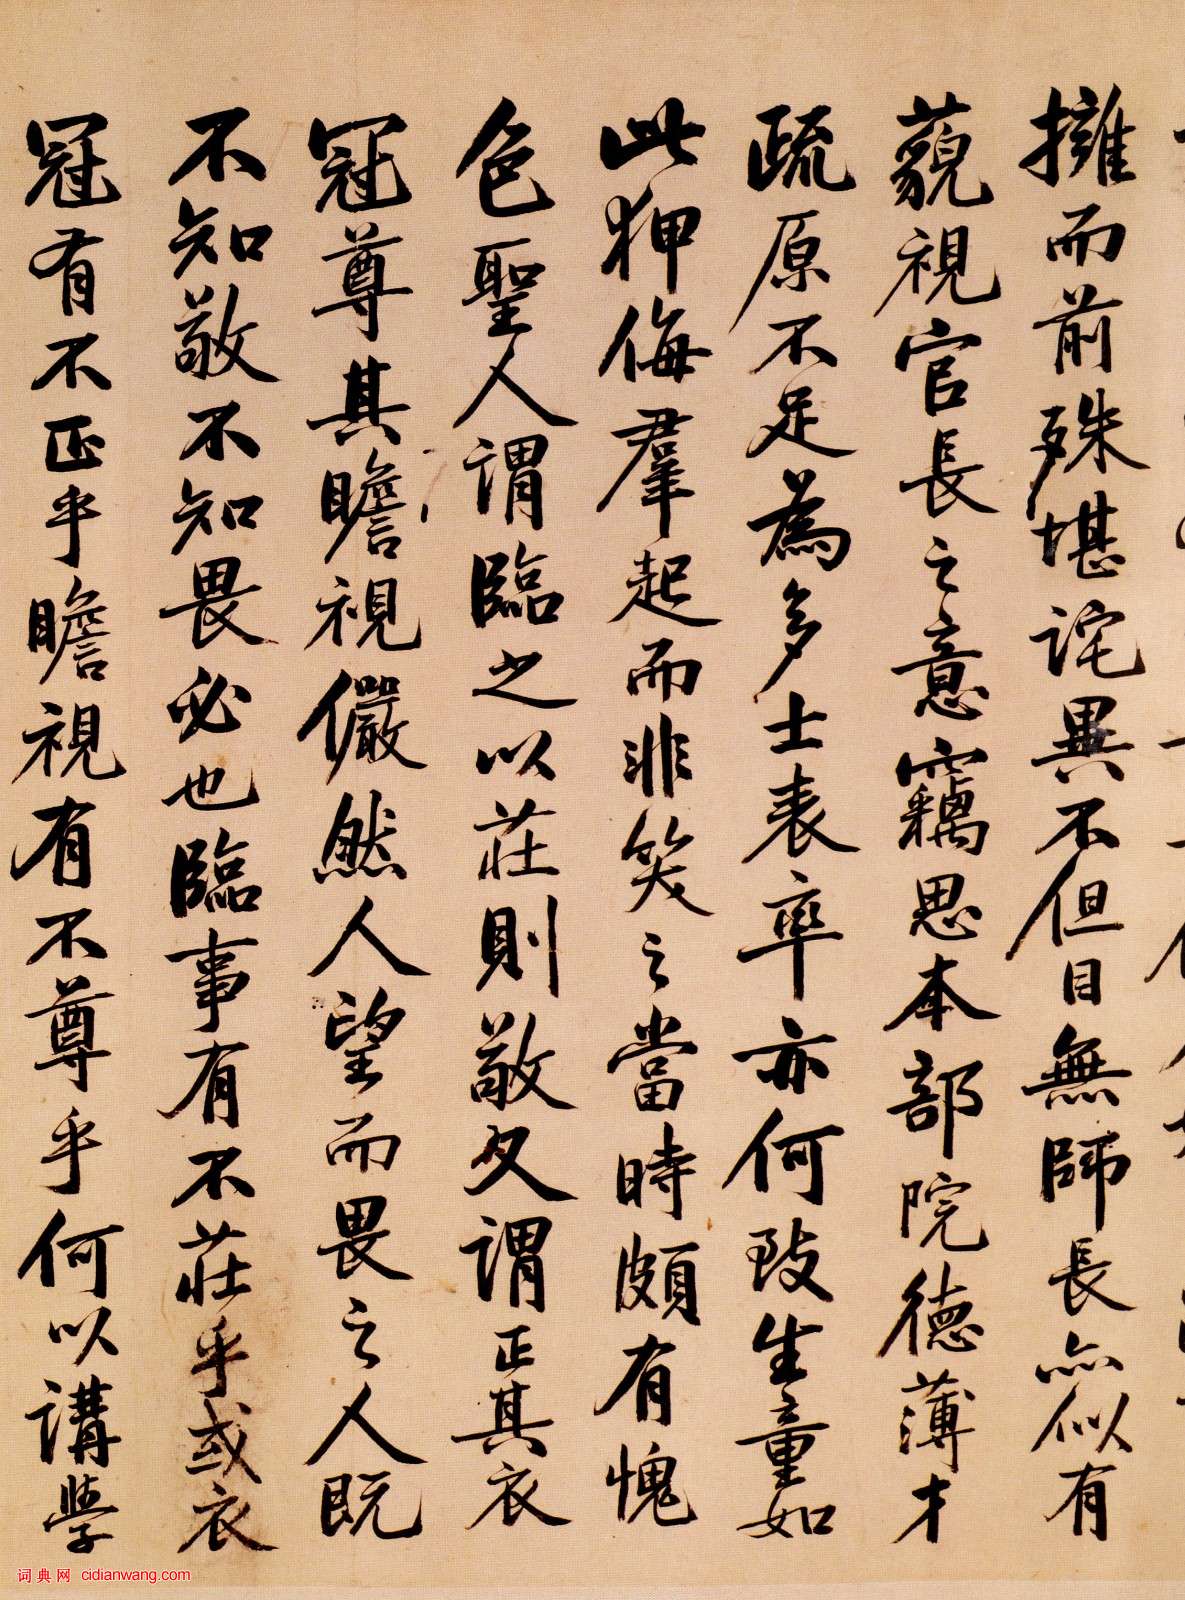 擁而前殊堪詫異不但目無師長亦似有
藐視官長之意竊思本部院德薄才
疏原不足為多士表率亦何致生童如
此狎侮羣起而非笑之當時頗有愧
色聖人謂臨之以莊則敬又謂正其衣
冠尊其瞻視儼然人望而畏之人既
不知敬不知畏必也臨事有不莊乎或衣
冠有不正乎瞻視有不尊乎何以講學
词典网 cidianwang.com